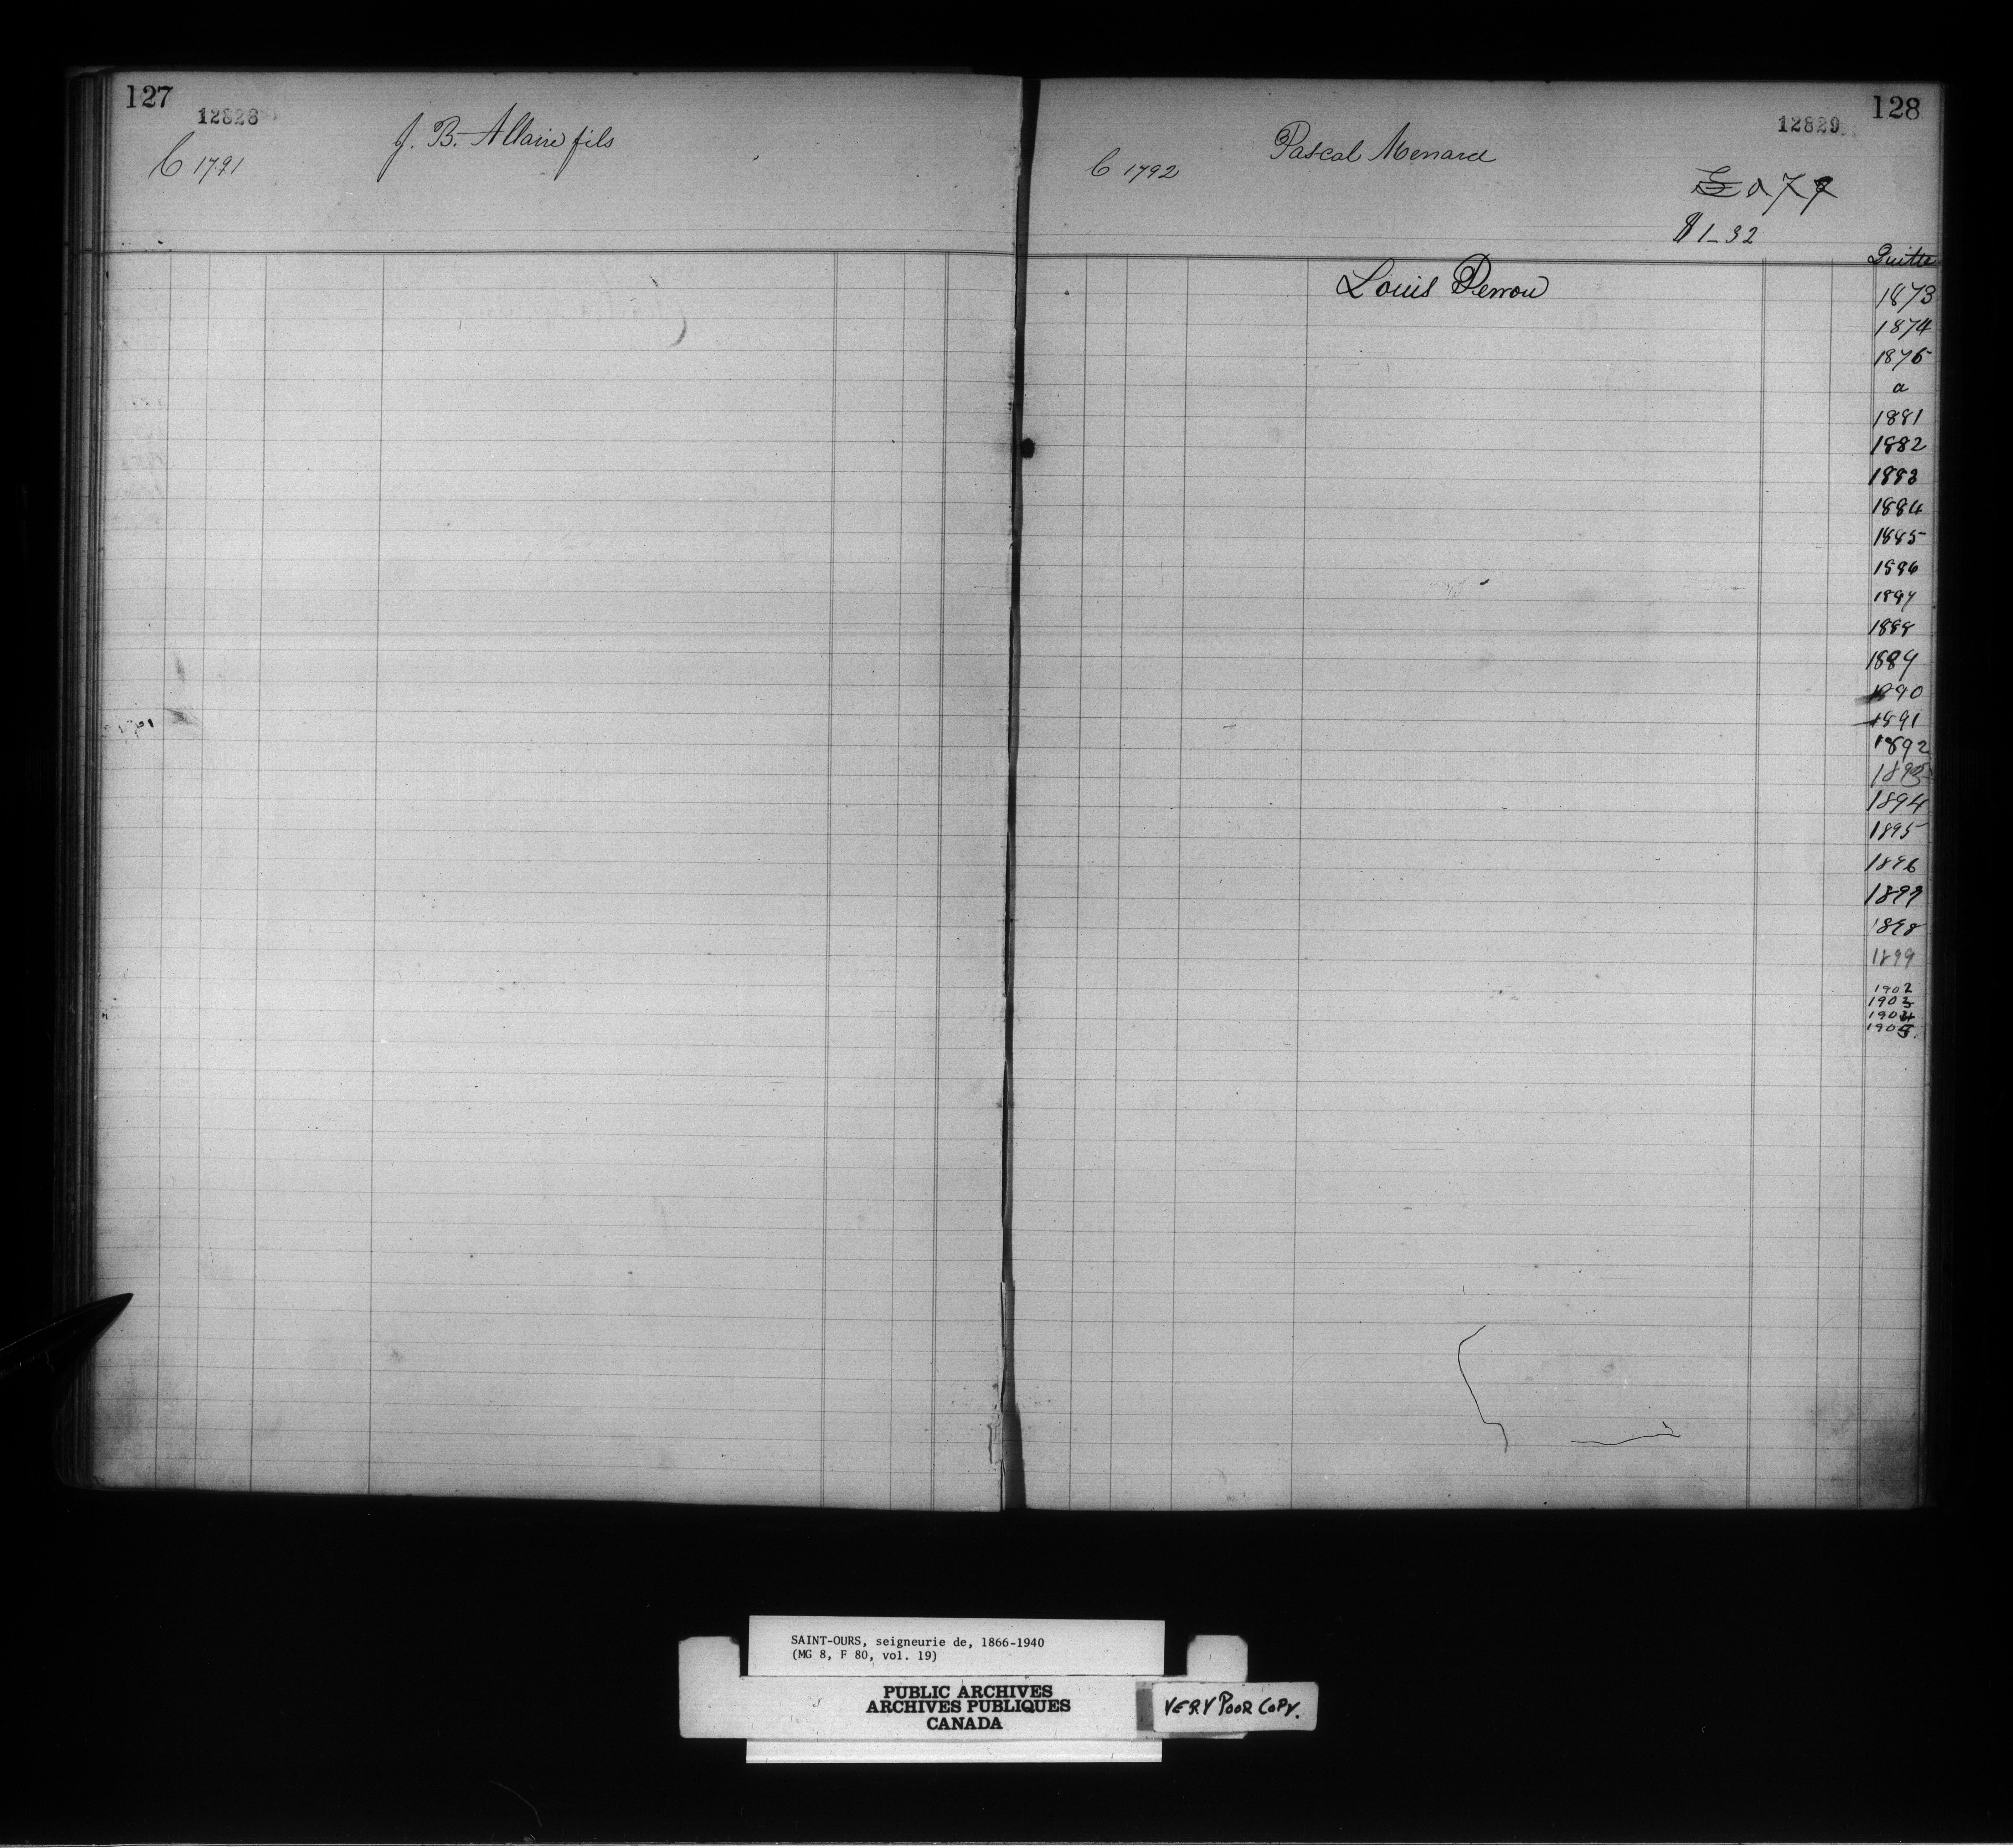 127
12828
C 1791
J. B. Allaire fils
128
12829
C 1792
Pascal Menard
$1-32
Quitte
Louis Perron
1873
1874
1875
a
1881
1882
1883
1884
1885
1886
1887
1888
1889
1890
1891
1892
1893
1894
1895
1896
1897
1898
1899
1902
1903
1904
1905.
SAINT-OURS, seigneurie de, 1866-1940
(MG 8, F 80, vol. 19)
PUBLIC ARCHIVES
ARCHIVES PUBLIQUES
CANADA
VERY POOR COPY.